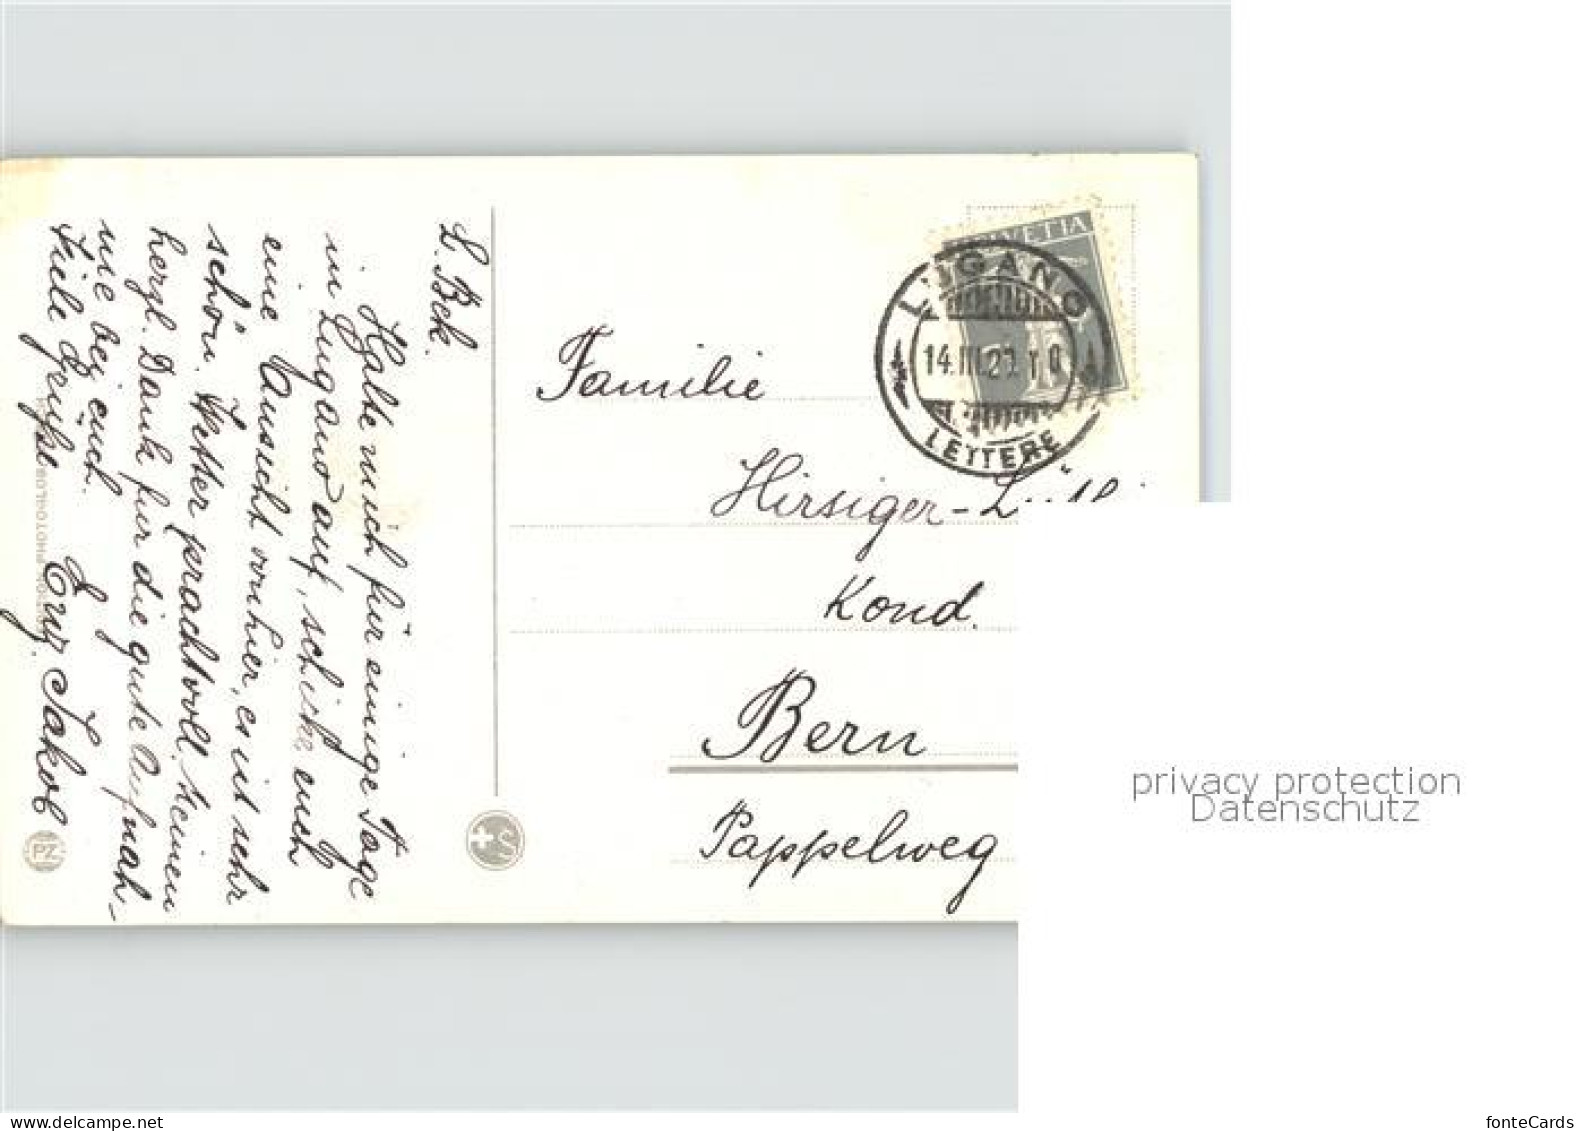 L. Bek.
Halte mich für einige Tage
in Lugano auf, schicke euch
eine Aussicht von hier, es ist sehr
schön. Wetter prachtvoll. Keinen
herzl. Dank für die gute Aufnah-
me bei euch.
Viele Grüße
Euer Jakob
Familie
Hirsiger-Lüthi
Kond.
Bern
Pappelweg
HELVETIA
LUGANO
14.III.29.
LETTERE
PZ
privacy protection
Datenschutz
www.delcampe.net
fonteCards